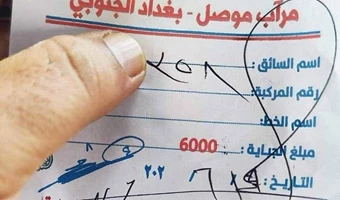 مرآب موصل - بغداد الجنوبي
اسم السائق:
رقم المركبة:
اسم الخط:
مبلغ الجباية: 6000
التاريخ: / / ٢٠٢